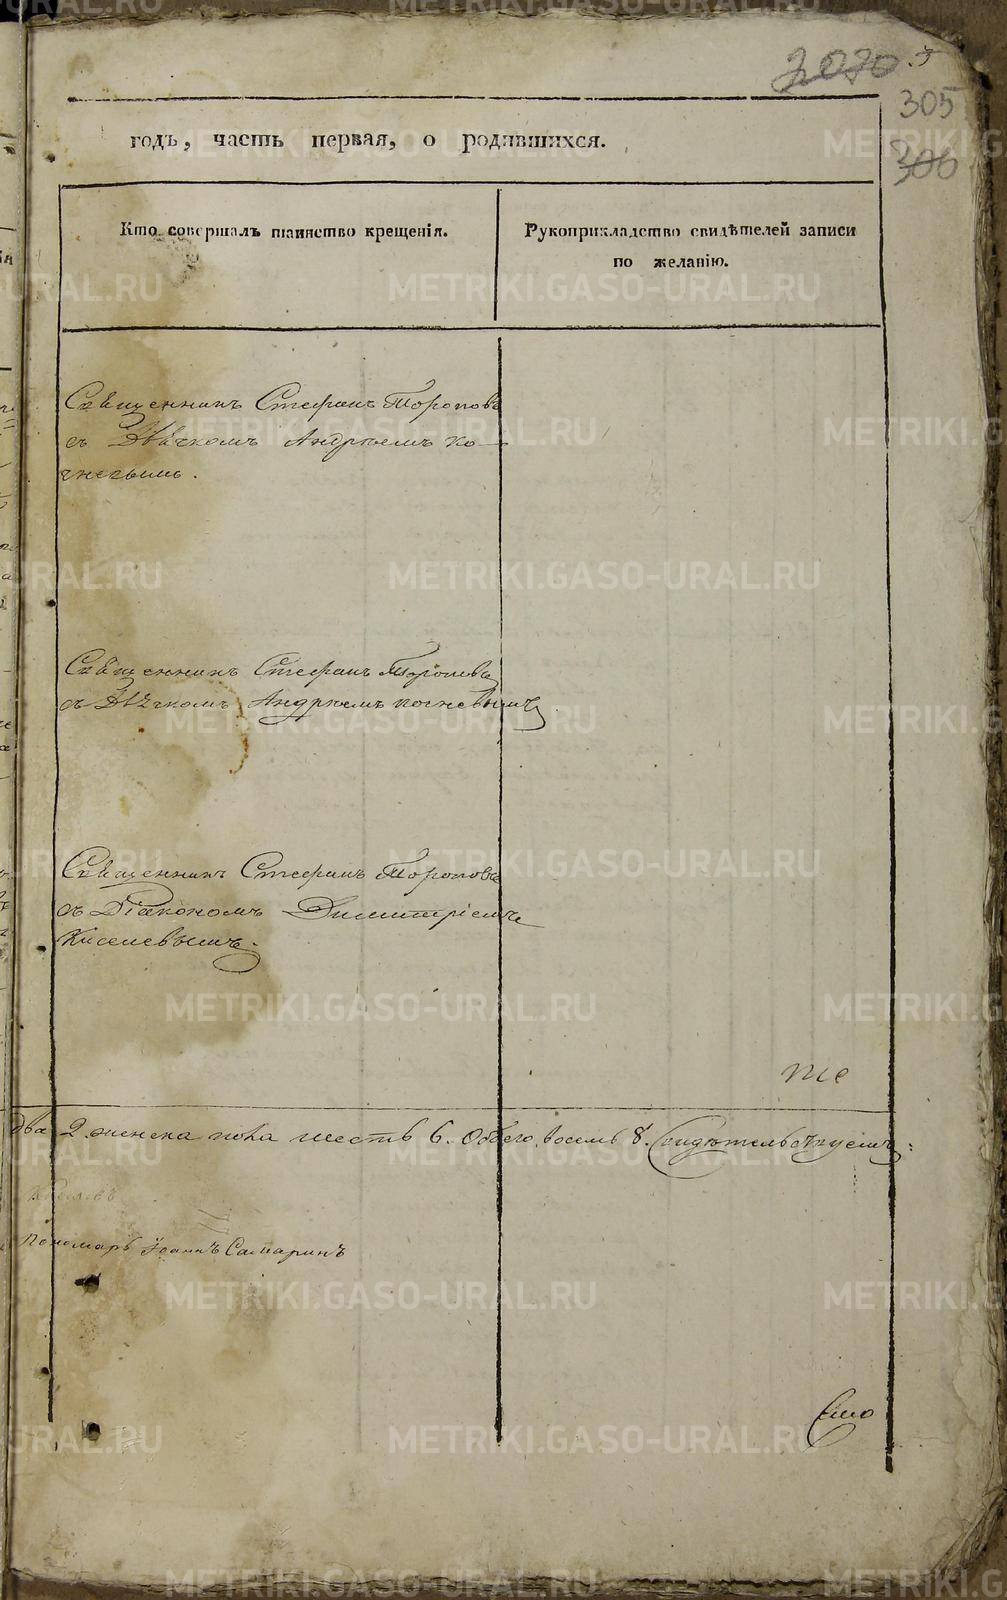 2070
305
306
годъ, часть первая, о родившихся.
Кто совершалъ таинство крещенія.
Рукоприкладство свидѣтелей записи
по желанію.
Священникъ Стефанъ Тороповъ
съ Дьячкомъ Андреемъ Ко-
чневымъ.
Священникъ Стефанъ Тороповъ
съ Дьячкомъ Андреемъ Кочневымъ
Священникъ Стефанъ Тороповъ
съ Діакономъ Димитріемъ
Киселевымъ.
два 2 женска пола шесть 6. Обоего восемь 8. Свидѣтельствуемъ:
Пономарь Іоаннъ Сапаринъ
METRIKI.GASO-URAL.RU